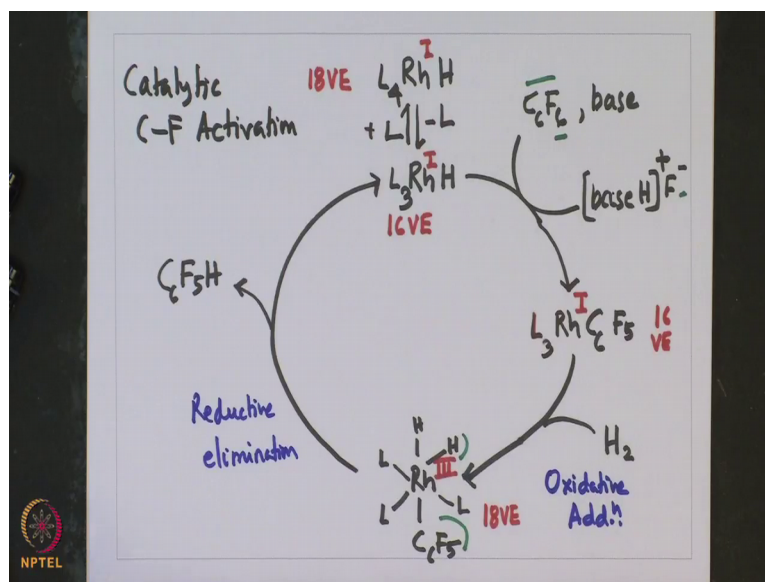 Catalytic
C-F Activation
18VE
I
L₄RhH
+L ⇌ -L
I
L₃RhH
16VE
C₆F₆, base
[baseH]⁺F⁻
I
L₃RhC₆F₅
16
VE
H₂
Oxidative
Addⁿ.
H
L H
III
Rh
L L
C₆F₅
18VE
Reductive
elimination
C₆F₅H
NPTEL